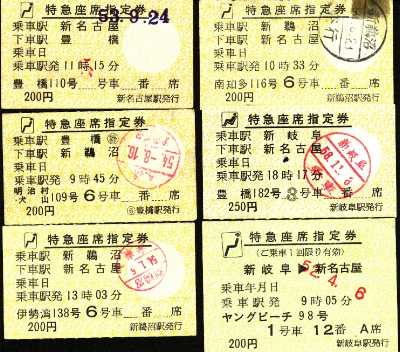 特急座席指定券
53.9.24
乗車駅 新名古屋
下車駅 豊橋
乗車日
乗車駅発 11時15分
豊橋110号 号車 番 席
200円 新名古屋駅発行
特急座席指定券
乗車駅 新鵜沼
下車駅 新名古屋
乗車日
乗車駅発 10時33分
南知多116号 6号車 番 席
200円 新鵜沼駅発行
特急座席指定券
乗車駅 豊橋
下車駅 新鵜沼
乗車日
乗車駅発 9時45分
明治村
犬山 109号 6号車 番 席
200円 豊橋駅発行
54.-8.10
特急座席指定券
乗車駅 新岐阜
下車駅 新名古屋
乗車日
乗車駅発 18時17分
豊橋182号 号車 番 席
250円 新岐阜駅発行
新岐阜
特急座席指定券
乗車駅 新鵜沼
下車駅 新名古屋
乗車日
乗車駅発 13時03分
伊勢湾138号 6号車 番 席
200円 新鵜沼駅発行
特急座席指定券
(ご乗車1回限り有効)
新岐阜▶新名古屋
52.4.6
乗車年月日
乗車駅発 9時05分
ヤングビーチ 98号
1号車 12番 A席
200円 新岐阜駅発行